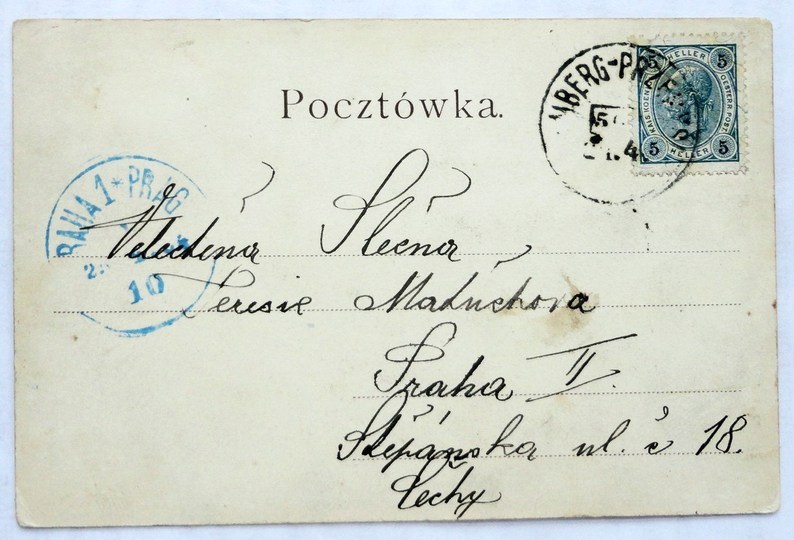 Pocztówka.
MBERG-PRZEMY
5
4
5 HELLER 5
KAIS. KOEN.
OESTERR. POST.
5 HELLER 5
RAHA 1 * PRAG
10
Slečna
Teresie Matuchova
Praha II.
Štěpánska ul. č 18.
Čechy